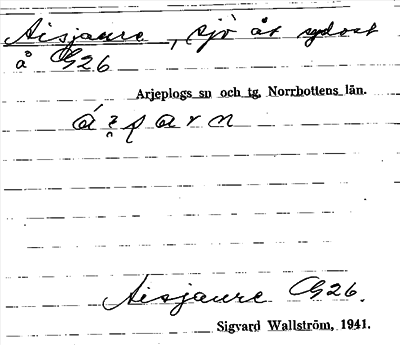 Aisjaure, sjö åt sydost
å G26
Arjeplogs sn och tg, Norrbottens län.
Aisjaure G26.
Sigvard Wallström, 1941.